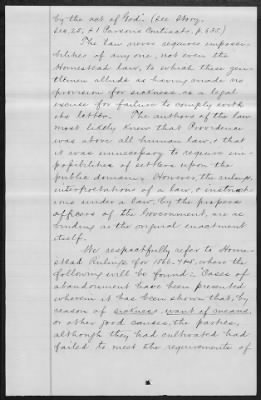 by the act of God." (See Story,
Sec. 25, & 1 Parsons Contracts, p.
The law never requires impossi-
bilities of any one, not even the
Homestead law, to which these gen-
tlemen allude as having made no
provision for sickness as a legal
excuse for failure to comply with
its letter. The authors of the law
most likely knew that Providence
was above all human law, & that
it was unnecessary to require im-
possibilities of settlers upon the
public domain. However, the rulings,
interpretations of a law, & instruct-
ions under a law, by the proper
officers of the Government, are as
binding as the original enactment
itself.
We respectfully refer to Home-
stead Rulings for 1866. where the
following will be found: "Cases of
abandonment have been presented
wherein it has been shown that, by
reason of sickness, want of means,
or other good causes, the parties,
although they had cultivated had
failed to meet the requirements of